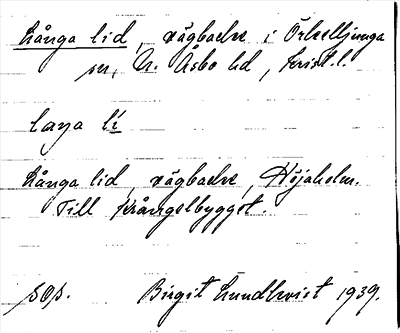 Långa lid, vägbacke i Örkelljunga
sn, N. Åsbo hd, Krist. l.
laŋa lí
Långa lid, vägbacke, Höjaholm.
Till Krångelbygget.
sOp. Birgit Lundkvist 1939.